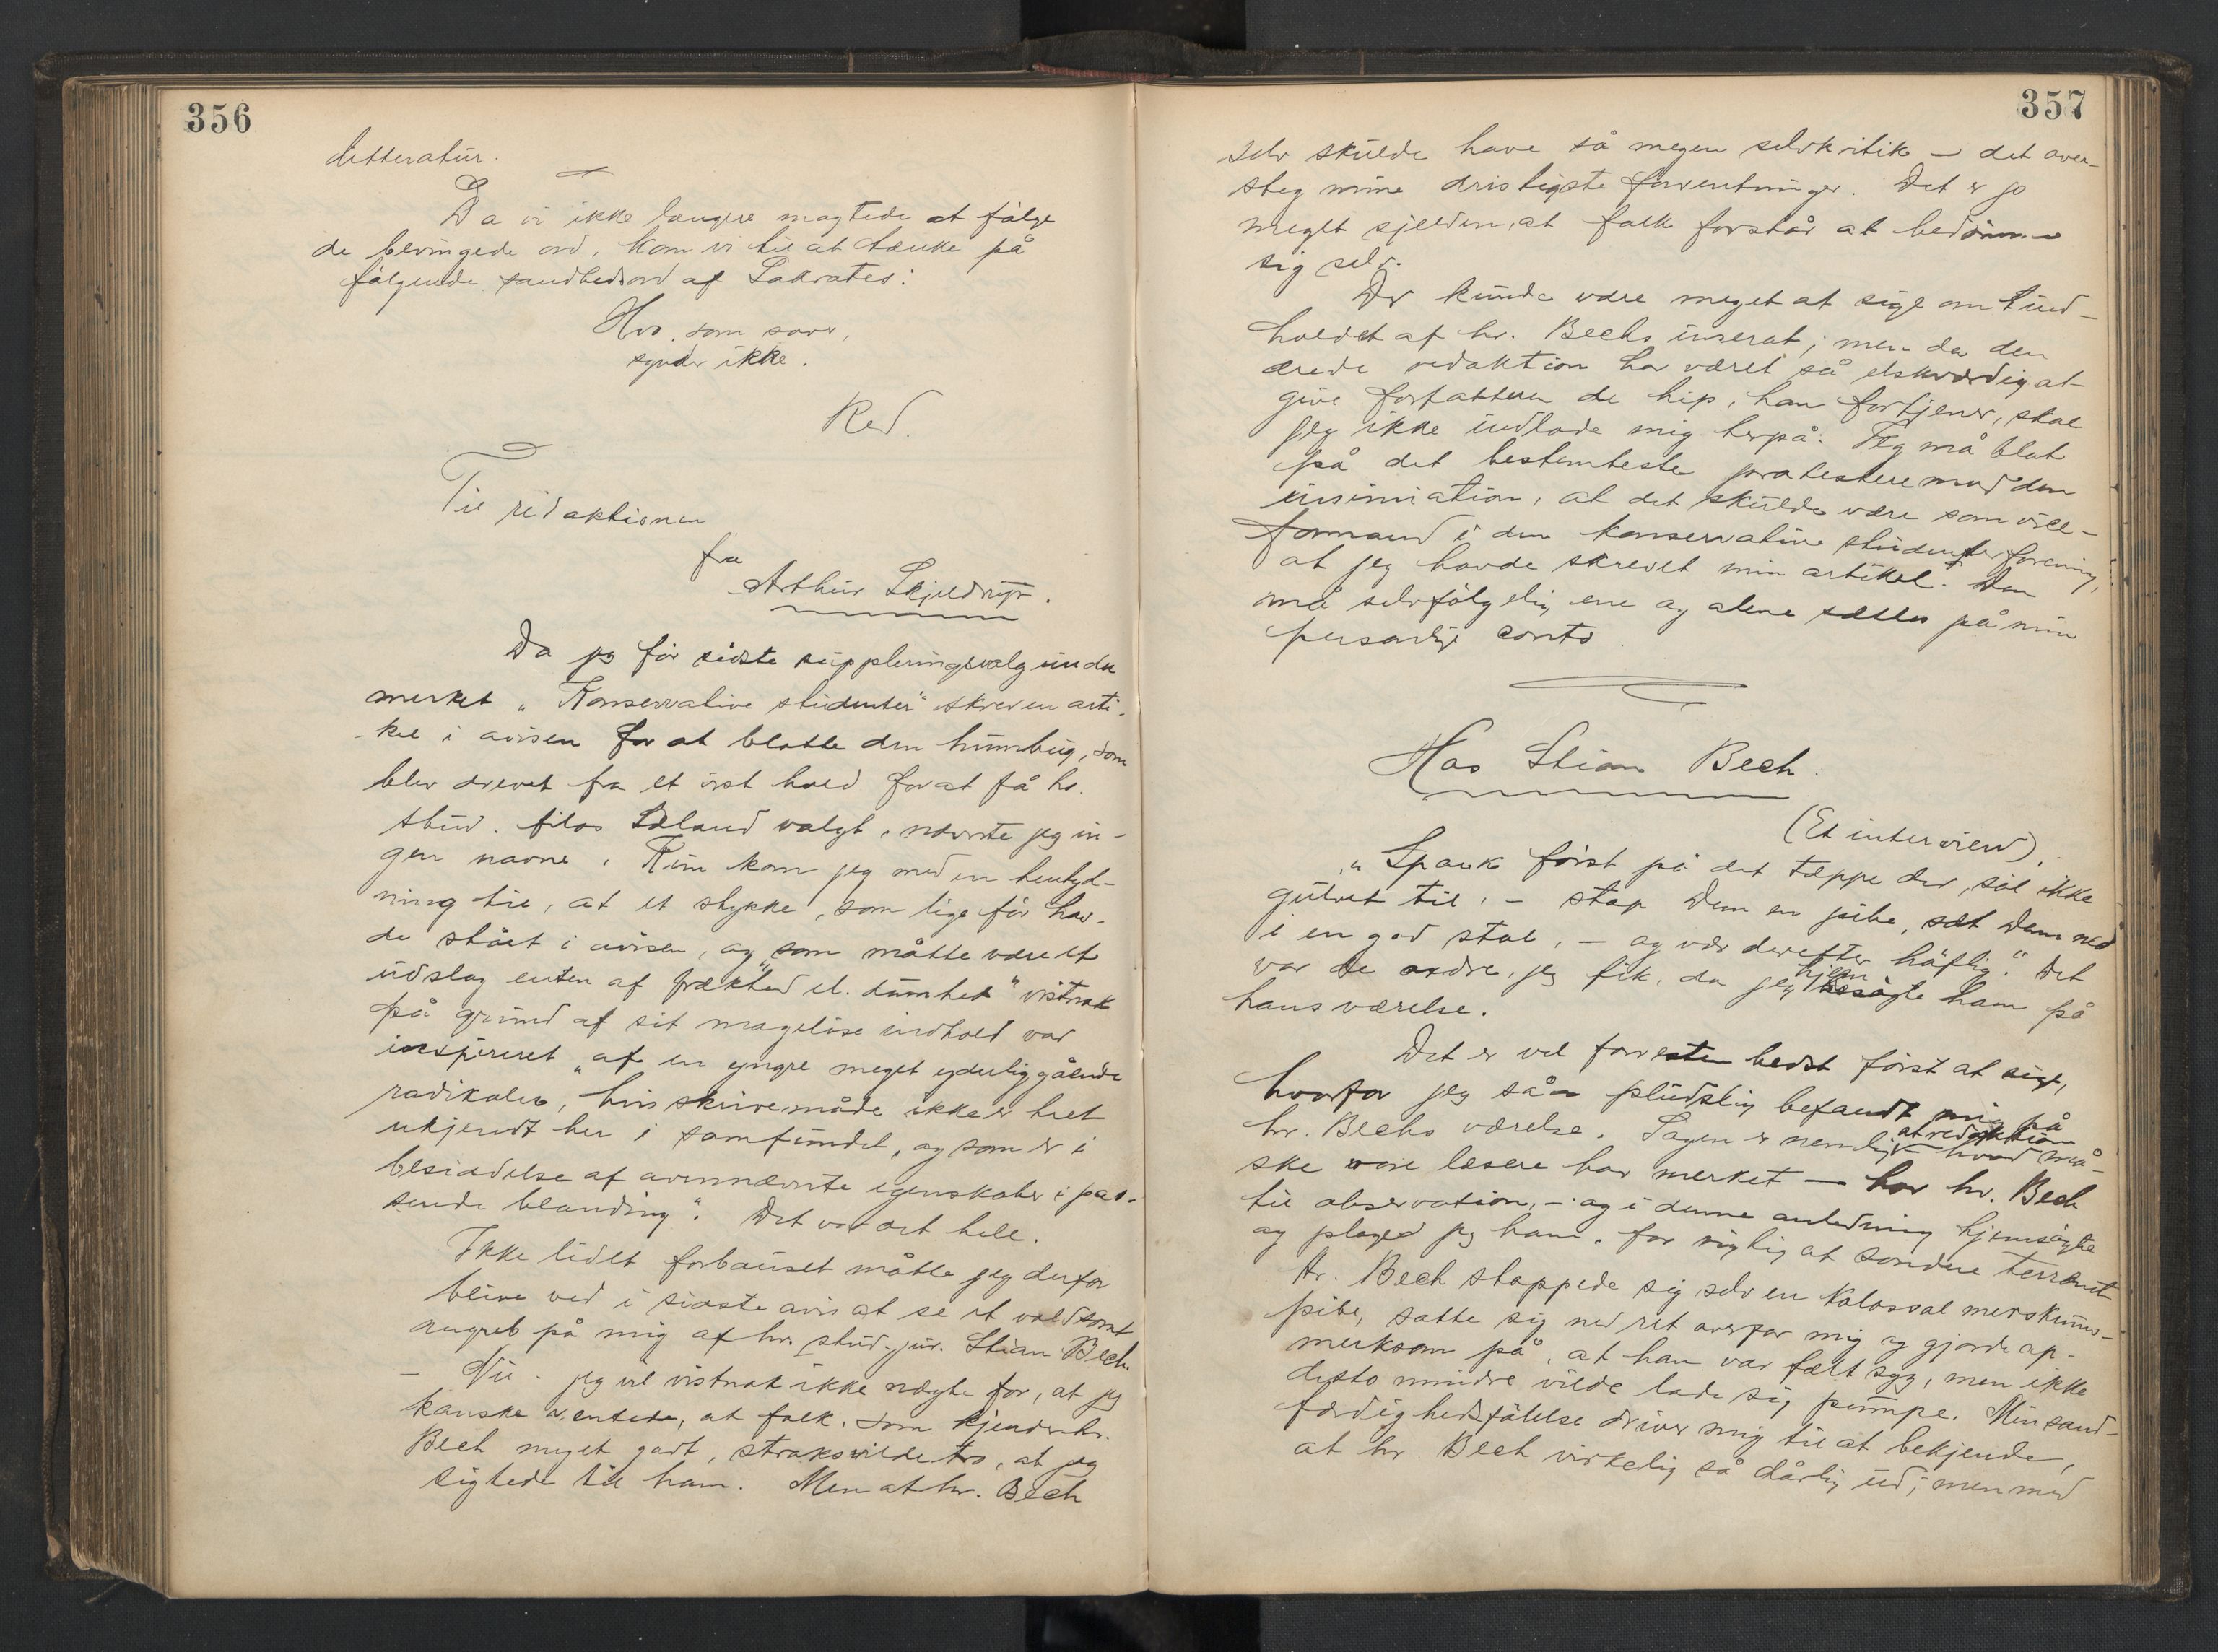 356
litteratur.
Da vi ikke længere magtede at følge
de bevingede ord, kom vi til at tænke på
følgende sandhedsord af Sokrates:
Hvo, som sover,
synder ikke.
Red.
Til redaktionen
fra
Arthur Skjeldrup.
Da jeg før sidste suppleringsvalg under
merket „Konservative studenter“ skrev en arti-
kel i avisen for at blotte den humbug, som
blev drevet fra et vist hold for at få hr.
stud. filos Sæland valgt, nævnte jeg in-
gen navne. Kun kom jeg med en hentyd-
ning til, at et stykke, som lige før hav-
de stået i avisen, og „som måtte være et
udslag enten af frækhed el. dumhed“ vistnok
på grund af sit mageløse indhold var
inspireret „af en yngre meget yderliggående
radikaler, hvis skrivemåde ikke er helt
ukjendt her i samfundet, og som er i
besiddelse af ovennævnte egenskaber i pas-
sende blanding“. Det var det hele.
Ikke lidet forbauset måtte jeg derfor
blive ved i sidste avis at se et voldsomt
angreb på mig af hr. stud. jur. Stian Bech.
— Nu - jeg vil vistnok ikke nægte for, at jeg
kanske ventede, at folk, som kjender hr.
Bech meget godt, straks vilde tro, at jeg
sigtede til ham. Men at hr. Bech
357
selv skulde have så megen selvkritik — det over-
steg mine dristigste forventninger. Det er jo
meget sjelden, at folk forstår at bedømme
sig selv.
Der kunde være meget at sige om ind-
holdet af hr. Bechs inserat; men da den
ærede redaktion har været så elskværdig at
give forfatteren de hip, han fortjener, skal
jeg ikke indlade mig herpå. Jeg må blot
på det bestemteste protestere mod den
insinuation, at det skulde være som vice-
formand i den konservative studenterforening,
at jeg havde skrevet min artikel. Den
må selvfølgelig ene og alene sættes på min
personlige conto.
Hos Stian Bech.
(Et interview).
„Spark først på det tæppe der, søl ikke
gulvet til, – stop Dem en pibe, sæt Dem ned
i en god stol, – og vær derefter høflig.“ Det
var de ordre, jeg fik, da jeg hjemsøgte ham på
hans værelse.
Det er vel forresten bedst først at sige,
hvorfor jeg så pludselig befandt mig på
hr. Bechs værelse. Sagen er nemlig at redaktion – hvad må-
ske vore læsere har merket — har hr. Bech
til observation, – og i denne anledning hjemsøgte
og plaged jeg ham, for rigtig at sondere terrænet
Hr. Bech stoppede sig selv en kolossal merskums-
pibe, satte sig ned ret overfor mig og gjorde op-
merksom på, at han var fælt syg, men ikke
desto mindre vilde lade sig pumpe. Min sand-
færdighedsfølelse driver mig til at bekjende,
at hr. Bech virkelig så dårlig ud; men med